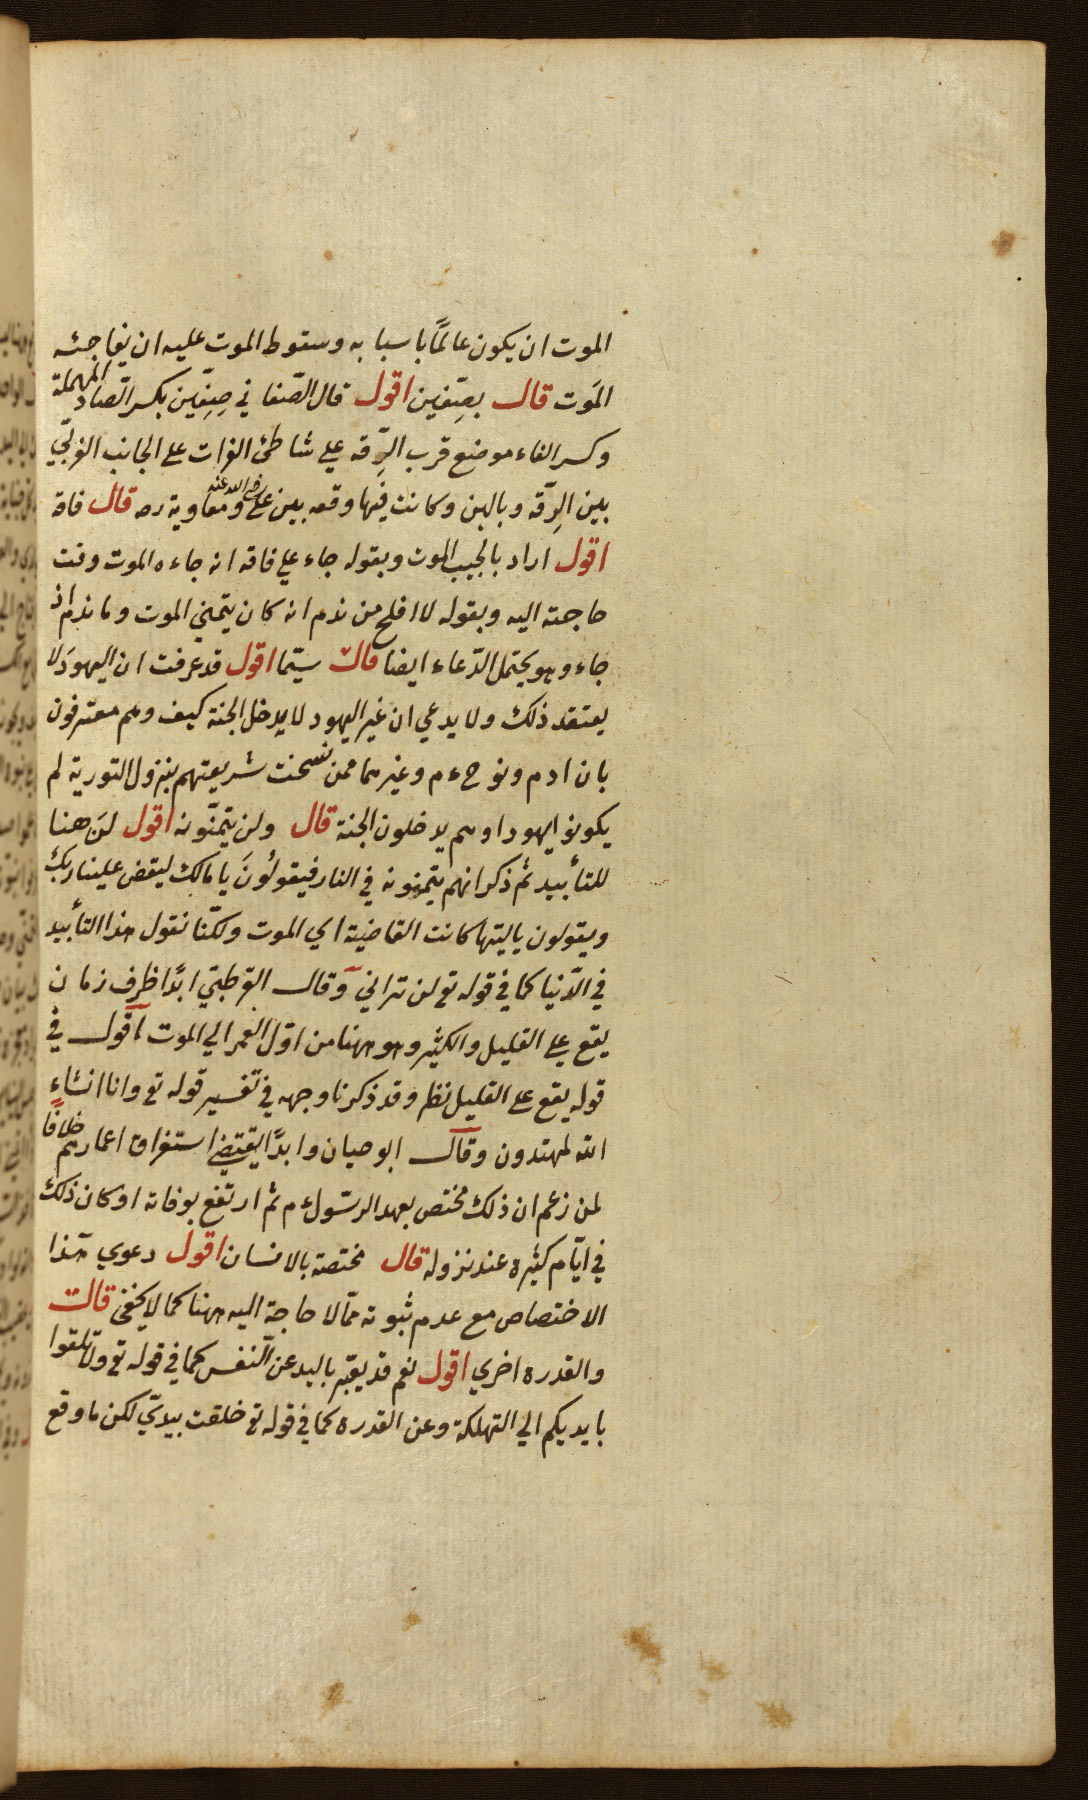 الموت ان يكون عالمًا باسبابه وسقوط الموت عليه ان يفاجئه
المَوت قال بصِفّين اقول قال الصّغا في صِفِّين بكسر الصّاد المهملة
وكسر الفاء موضع قرب الرِّقه علي شاطئ الفرات على الجانب الغربّي
بين الرِقّه وبالين وكانت فيها وقعه بين على رضى الله عنه ومعاوية ره قال فاقه
اقول اراد بالجيب الموت وبقوله جاء علي فاقه انه جاءه الموت وقت
حاجته اليه وبقوله لا افلح من ندم انه كان يتمنى الموت وما ندم اذ
جاء وهو يحتمل الدّعاء ايضا قال سيّما اقول قد عرفت ان اليهودَ لا
يعتقد ذلك ولا يدعي ان غير اليهود لا يدخل الجنة كيف وهم معترفون
بان ادم ونوح ءم وغيرهما ممن نسخت شريعتهم بنزول التورية لم
يكونوا يهودا وهم يدخلون الجنة قال ولن يتمنّونه اقول لن هنا
للتأبيد ثم ذكر انهم يتمنونه في النار فيقولُونَ يا مالك ليقض علينا ربك
ويقولون ياليتها كانت القاضية اي الموت ولكّنا نقول هذا التأبيد
في الدّنيا كما في قوله تع لن تراني وقال القرطبّي ابدًا ظرف زمان
يقع علي القليل والكثير وهو ههنا من اوّل العمر الي الموت اقول في
قوله يقع على القليل نظر وقد ذكرنا وجهه في تفسير قوله تع وانا انشاء
الله لمهتدون وقال ابو حيان وابدًا يقتضي استغراق اعمارهم خلافًا
لمن زعم ان ذلك مختص بعهد الرسول ءم ثم ارتفع بوفاته او كان ذلك
في ايّام كثيره عند نزوله قال مختصة بالانسان اقول دعوي هذا
الاختصاص مع عدم ثبوته ممّا لا حاجة اليه ههنا كما لا يخفى قال
والقدره اخري اقول نعم قد يعبّر باليد عن النّفس كما في قوله تع ولا تلقوا
بايديكم الي التهلكة وعن القدره كما في قوله تع خلقت بيديّ لكن ما وقع